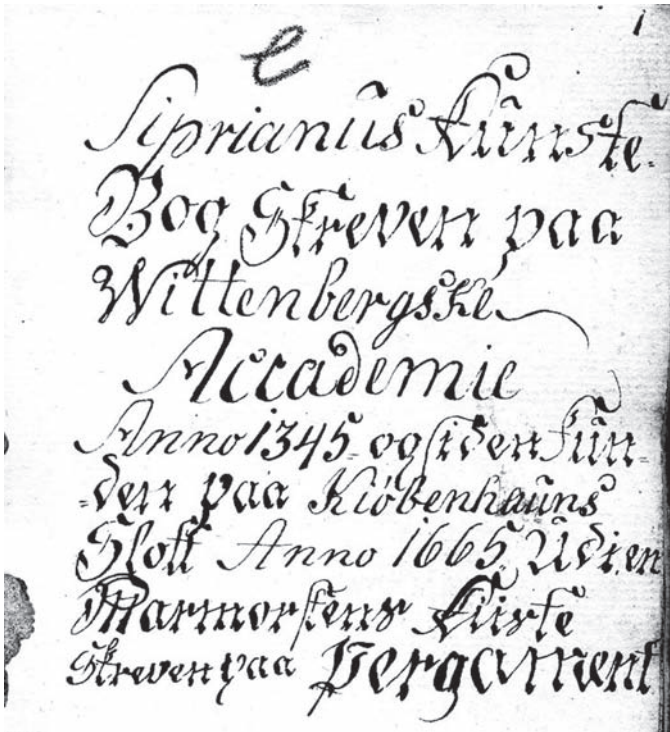 1
C
Siprianus Kunste-
Bog Skreven paa
Wittenbergske
Accademie
Anno 1345 og siden fun-
-den paa Kiöbenhauns
Slott Anno 1665 Udi en
Marmorstens Kiiste
Skreven paa Pergament